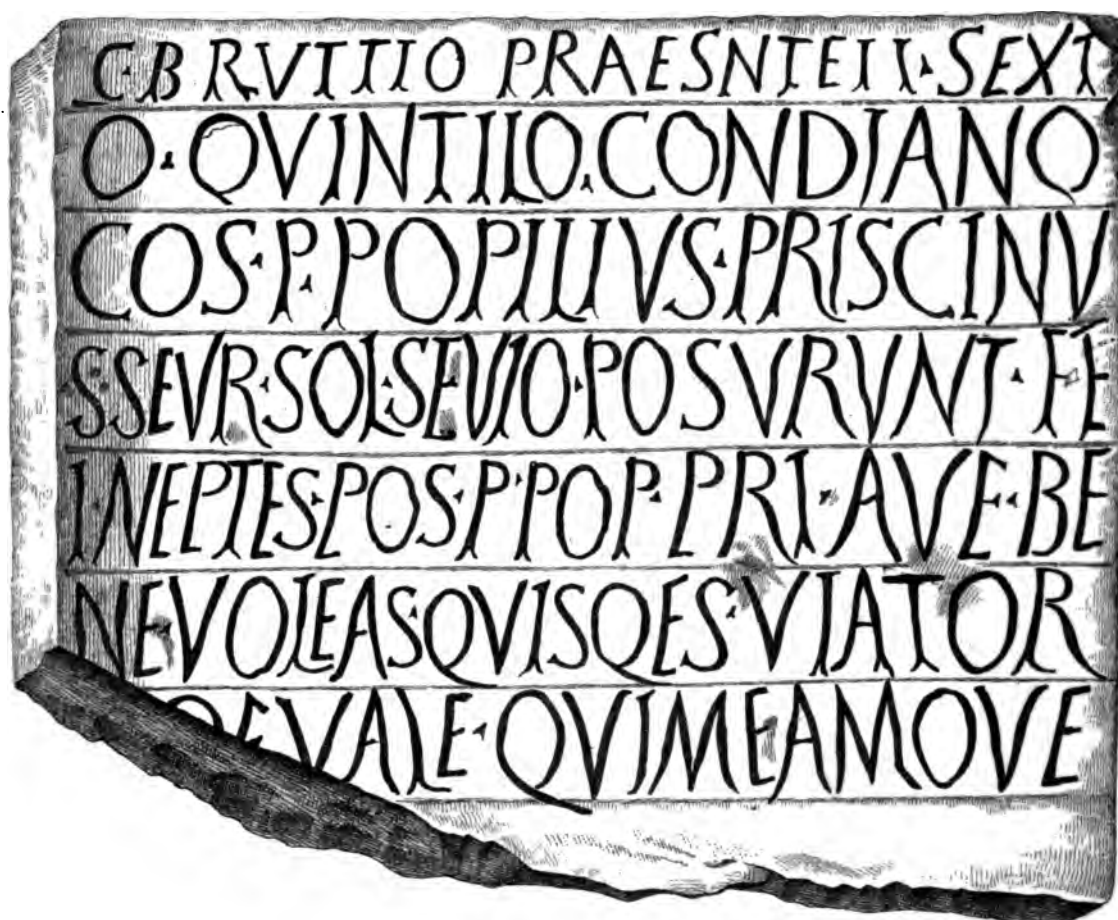 C·BRVTTIO PRAESNTEII·SEXT
O·QVINTILO·CONDIANO
COS·P·POPILIVS·PRISCINV
S·SEVR·SOL·SEVIO·POSVRVNT·FE
INEPTES·POS·P·POP·PRI·AVE·BE
NEVOLEAS·QVISQES·VIATOR
VALE·QVIMEAMOVE